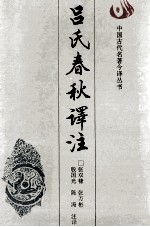 中国古代名著今译丛书
吕氏春秋譯注
□张双棣 张万彬
殷国光 陈涛
注译